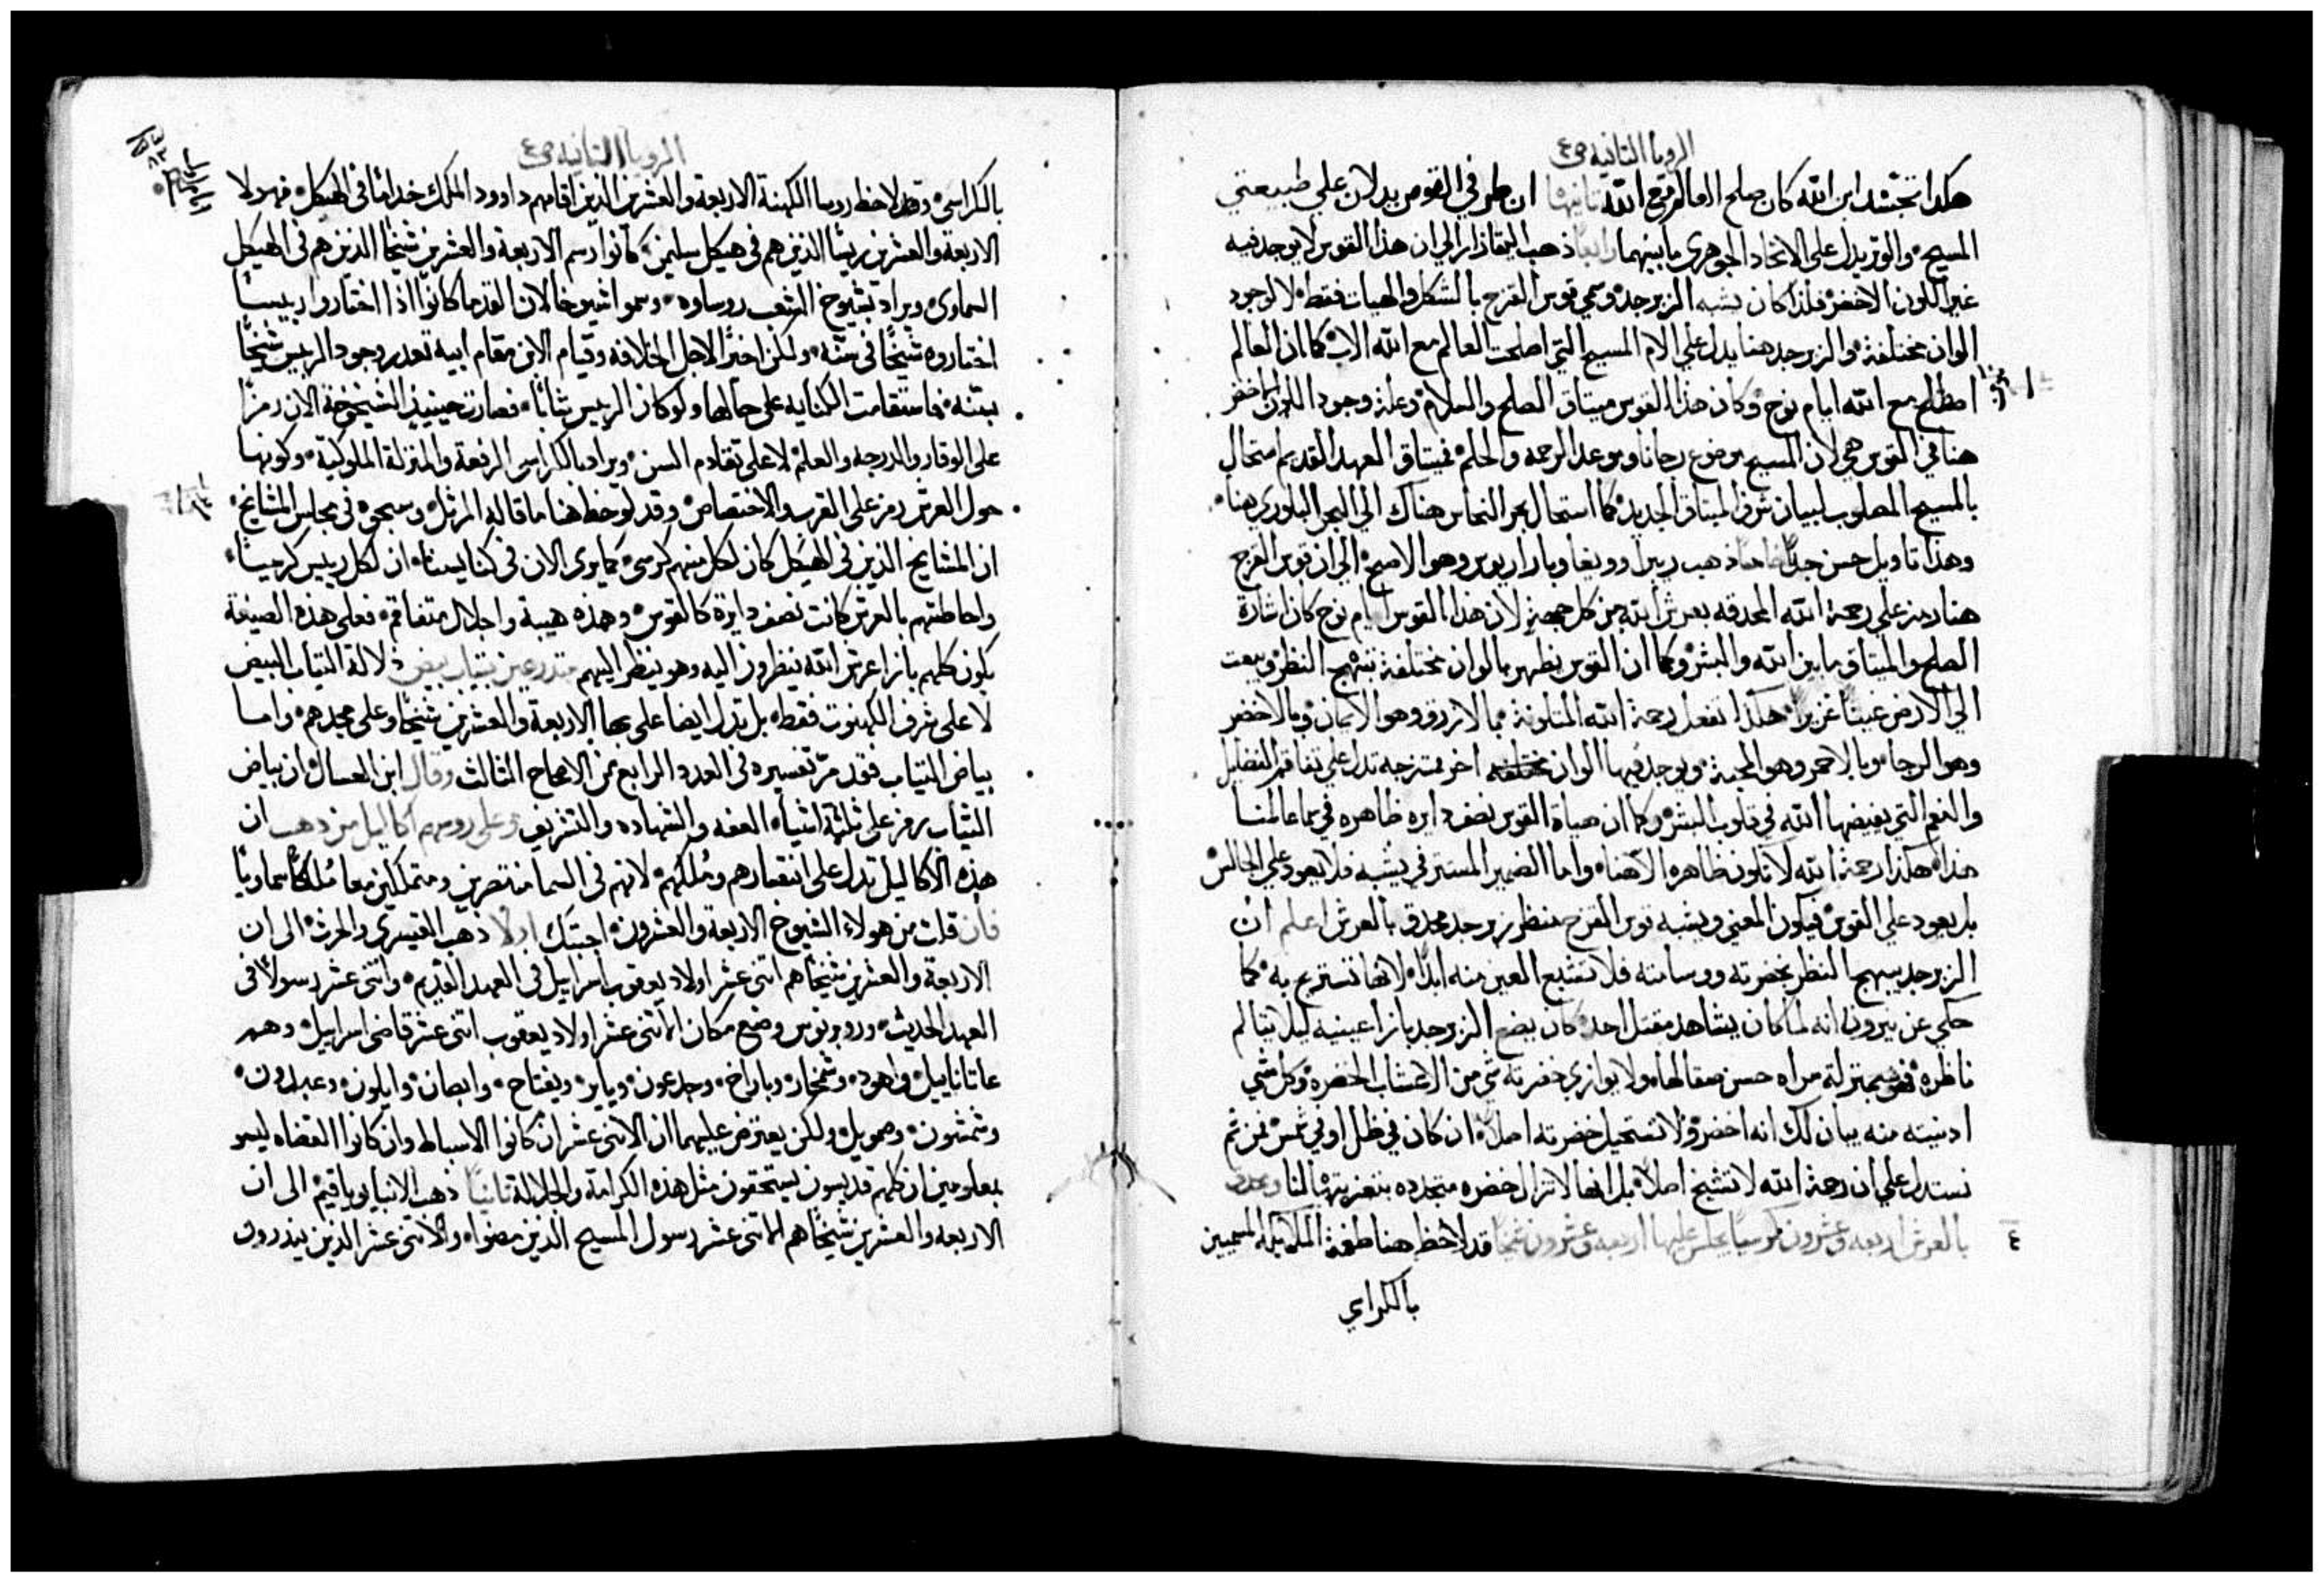 الرويا الثانيه ص٤
هكذا تجسد ابن الله كان صلح العالم مع الله ثالثها ان طرفي القوس يدلان علي طبيعتي
المسيح والوتر يدل على الاتحاد الجوهري ما بينهما رابعاً ذهب اليقاذار الي ان هذا القوس لا يوجد فيه
غير اللون الاخضر فلذا كان يشبه الزبرجد وسمي قوس القزح بالشكل والهيات فقط لا لوجود
الوان مختلفة والزبرجد هنا يدل علي الام المسيح التي اصلحت العالم مع الله الاب كما ان العالم
اصطلح مع الله ايام نوح وكان هذا القوس ميثاق الصلح والسلام وعلة وجود اللون الاخضر
هنا في القوس هي لان المسيح موضوع رجانا وموعد الرحمة والحلم فميثاق العهد القديم استحال
بالمسيح المصلوب لبيان شرف الميثاق الجديد كما استحال بحر النحاس هناك الي البحر البلوري هنا
وهذا تاويل حسن جداً خامساً ذهب ريبرا وويغا وباراريوس وهو الاصح الي ان قوس القزح
هنا رمز علي رحمة الله المحدقه بعرش الله من كل جهة لان هذا القوس ايام نوح كان اشارة
الصلح والميثاق ما بين الله والبشر وكما ان القوس يظهر بالوان مختلفة تبهج النظر ويبعث
الي الارض غيثاً غزيراً هكذا تفعل رحمة الله المتلونة بالازرق وهو الايمان وبالاخضر
وهو الرجا وبالاحمر وهو المحبة ويوجد فيها الوان مختلفه اخر ممتزجه تدل علي تفاقم الفضايل
والنعم التي يفيضها الله في قلوب البشر وكما ان حياة القوس نصف دايره ظاهره في سما عالمنا
هذا هكذا رحمة الله لا تكون ظاهره الا هنا واما الضمير المستتر في يشبه فلا يعود علي الجالس
بل يعود علي القوس فيكون المعني ويشبه قوس القزح منظر زبرجد محدق بالعرش اعلم ان
الزبرجد يبهج النظر بخضرته ووسامته فلا تشبع العين منه ابداً لانها تستريح به كما
حكي عن نيرون انه لما كان يشاهد مقتل احد كان يضع الزبرجد بازا عينيه ليلا يتالم
ناظره فهو بمنزلة مراه حسن صقالها ولا يوازي خضرته شي من الاعشاب الخضره وكل شي
ادنيته منه يبان لك انه اخضر ولا تستحيل خضرته اصلاً ان كان في ظل او في شمس فمن ثم
نستدل علي ان رحمة الله لا تشيخ اصلاً بل انها لا تزال خضره متجدده بتعزيتها لنا ومحدق
بالعرش اربعه وعشرون كرسياً يجلس عليها اربعه وعشرون شيخاً قد لاحظ هنا طغمة الملايكه المسميين
٤
بالكراسي
الرويا الثانيه ص٤
بالكراسي وقد لاحظ روسا الكهنة الاربعة والعشرين الذين اقامهم داوود الملك خداماً في الهيكل فهولا
الاربعة والعشرين ريساً الذين هم في هيكل سليمن كانوا رسم الاربعة والعشرين شيخاً الذين هم في الهيكل
السماوي ويراد بشيوخ الشعب روساوه وسموا شيوخاً لان القدما كانوا اذا اختاروا رييساً
اختاروه شيخاً في سنه ولكن اخيراً لاجل الخلافه وقيام الابن مقام ابيه تعذر وجود الرييس شيخاً
بسنه فاستقامت الكنايه على حالها ولو كان الرييس شاباً فصارت حينيذٍ الشيخوخة الان رمزاً
على الوقار والدرجه والعلم لا على تقادم السن ويراد بالكراسي الرفعة والمنزلة الملوكية وكونها
حول العرش رمز على القرب والاختصاص وقد لوحظ هنا ما قاله المرتل وسبحوه في مجلس المشايخ
ان المشايخ الذين في الهيكل كان لكل منهم كرسي كما يرى الان في كنايسنا ان لكل رييس كرسياً
واحاطتهم بالعرش كانت نصف دايرة كالقوس وهذه هيبة واجلال متفاقم فعلى هذه الصيغة
يكون كلهم بازا عرش الله ينظرون اليه وهو ينظر اليهم متدرعين بثياب بيض دلالة الثياب البيض
لا على شرف الكهنوت فقط بل تدل ايضا على بها الاربعة والعشرين شيخاً وعلى مجدهم واما
بياض الثياب فقد مر تفسيره في العدد الرابع من الاصحاح الثالث وقال ابن العسال ان بياض
الثياب يرمز على ثلثة اشياء العفه والشهاده والتشريف وعلى روسهم اكاليل من ذهب ان
هذه الاكاليل تدل على انتصارهم وملكهم لانهم في السما منتصرين ومتملكين معا ملكاً سماوياً
فان قلت من هولاء الشيوخ الاربعة والعشرون اجبتك اولاً ذهب القيسري والحرث الى ان
الاربعة والعشرين شيخاً هم اثني عشر اولاد يعقوب اسراييل في العهد القديم واثني عشر رسولاً في
العهد الحديث وروبرتوس وضع مكان الاثني عشر اولاد يعقوب اثني عشر قاضي اسراييل وهم
عاثاناييل واهود وشمجار وباراخ وجدعون ويايير ويفتاح وابصان وايلون وعبدون
وشمشون وصمويل ولكن يعترض عليهما ان الاثني عشر ان كانوا الاسباط وان كانوا القضاه ليسوا
بمعلومين ان كلهم قديسون يستحقون مثل هذه الكرامة والجلالة ثانياً ذهب الانبا يوياقيم الى ان
الاربعه والعشرين شيخاً هم الاثني عشر رسول المسيح الذين مضوا والاثني عشر الذين ينذرون